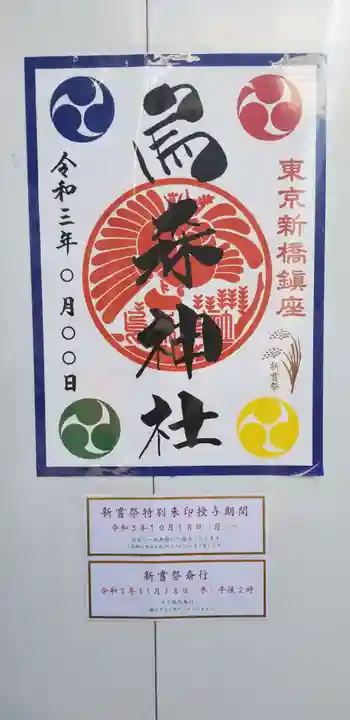 東京新橋鎮座
新嘗祭
烏森神社
令和三年〇月〇〇日
新嘗祭特別朱印授与期間
令和3年10月18日（月）～
新嘗祭斎行
令和3年11月18日（木）午後2時